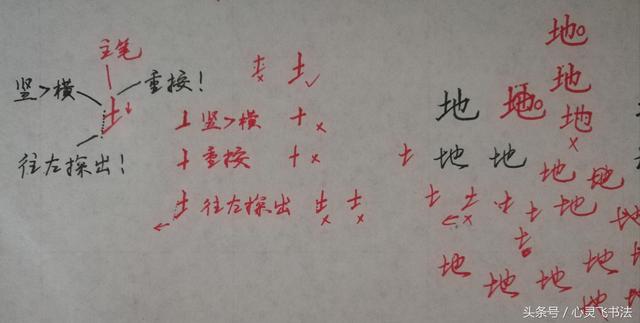 主笔
竖>横
重按！
往左探出！
土 土 ✓
丄 竖>横 十 ×
十 重按 十 ×
土 往左探出 土 × 土 ×
地。
地
地 地。 地 ×
土 地 地 地 地
土 土 土 土 地
土
地 地 地 地 地
头条号 / 心灵飞书法